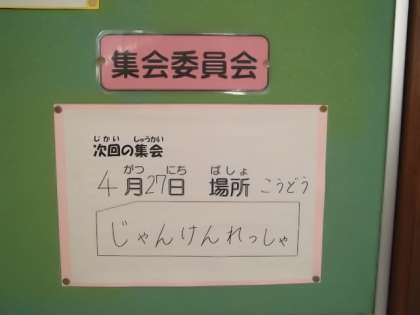 集会委員会
じかい しゅうかい
次回の集会
がつ にち ばしょ
4月27日 場所 こうどう
じゃんけんれっしゃ